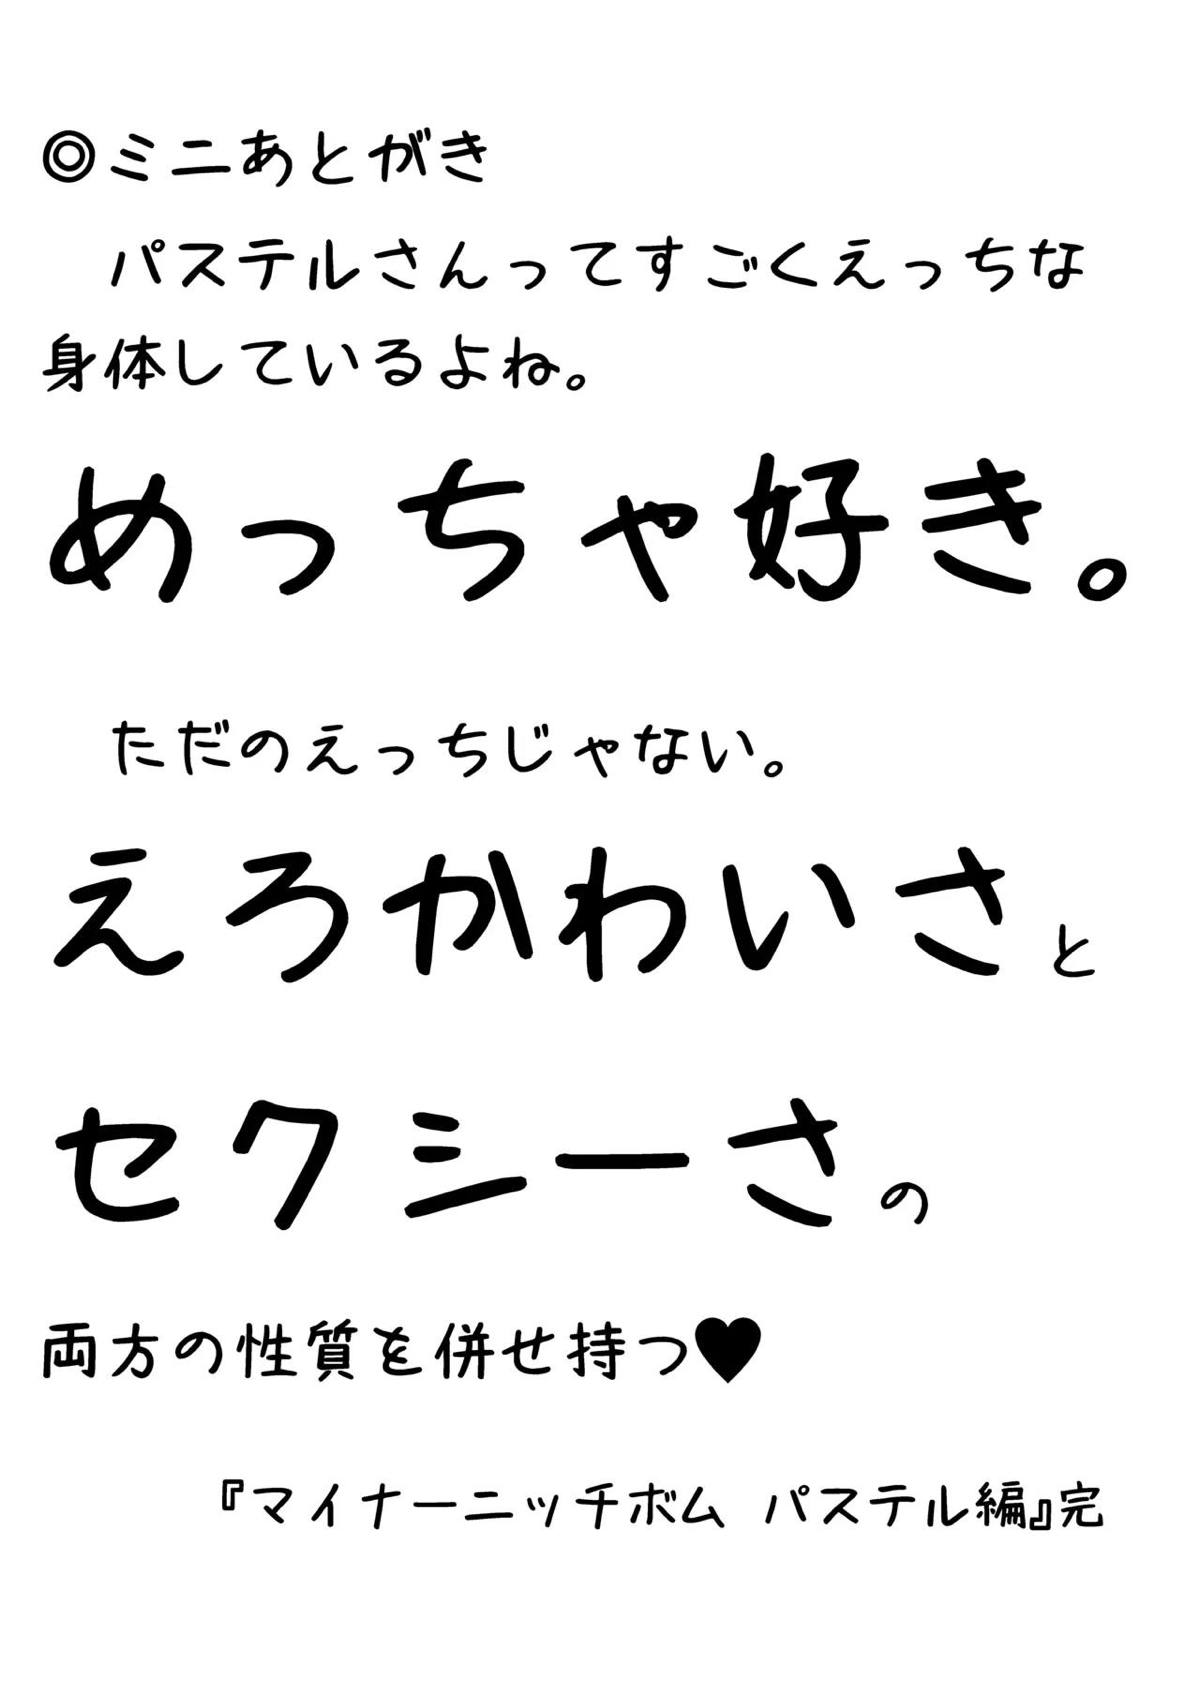 ◎ミニあとがき
パステルさんってすごくえっちな
身体しているよね。
めっちゃ好き。
ただのえっちじゃない。
えろかわいさと
セクシーさの
両方の性質を併せ持つ♥
『マイナーニッチボム パステル編』完